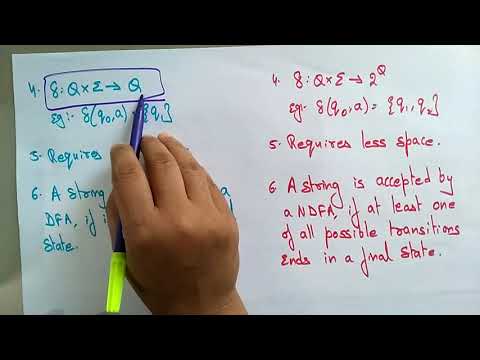 4. δ: Q×Σ → Q
Eg:- δ(q₀,a) = {q₁}
5. Requires
6. A string
DFA, if i
State.
4. δ: Q×Σ → 2^Q
Eg:- δ(q₀,a) = {q₁, q₂}
5. Requires less space.
6. A string is accepted by
a NDFA, if at least one
of all possible transitions
Ends in a final State.